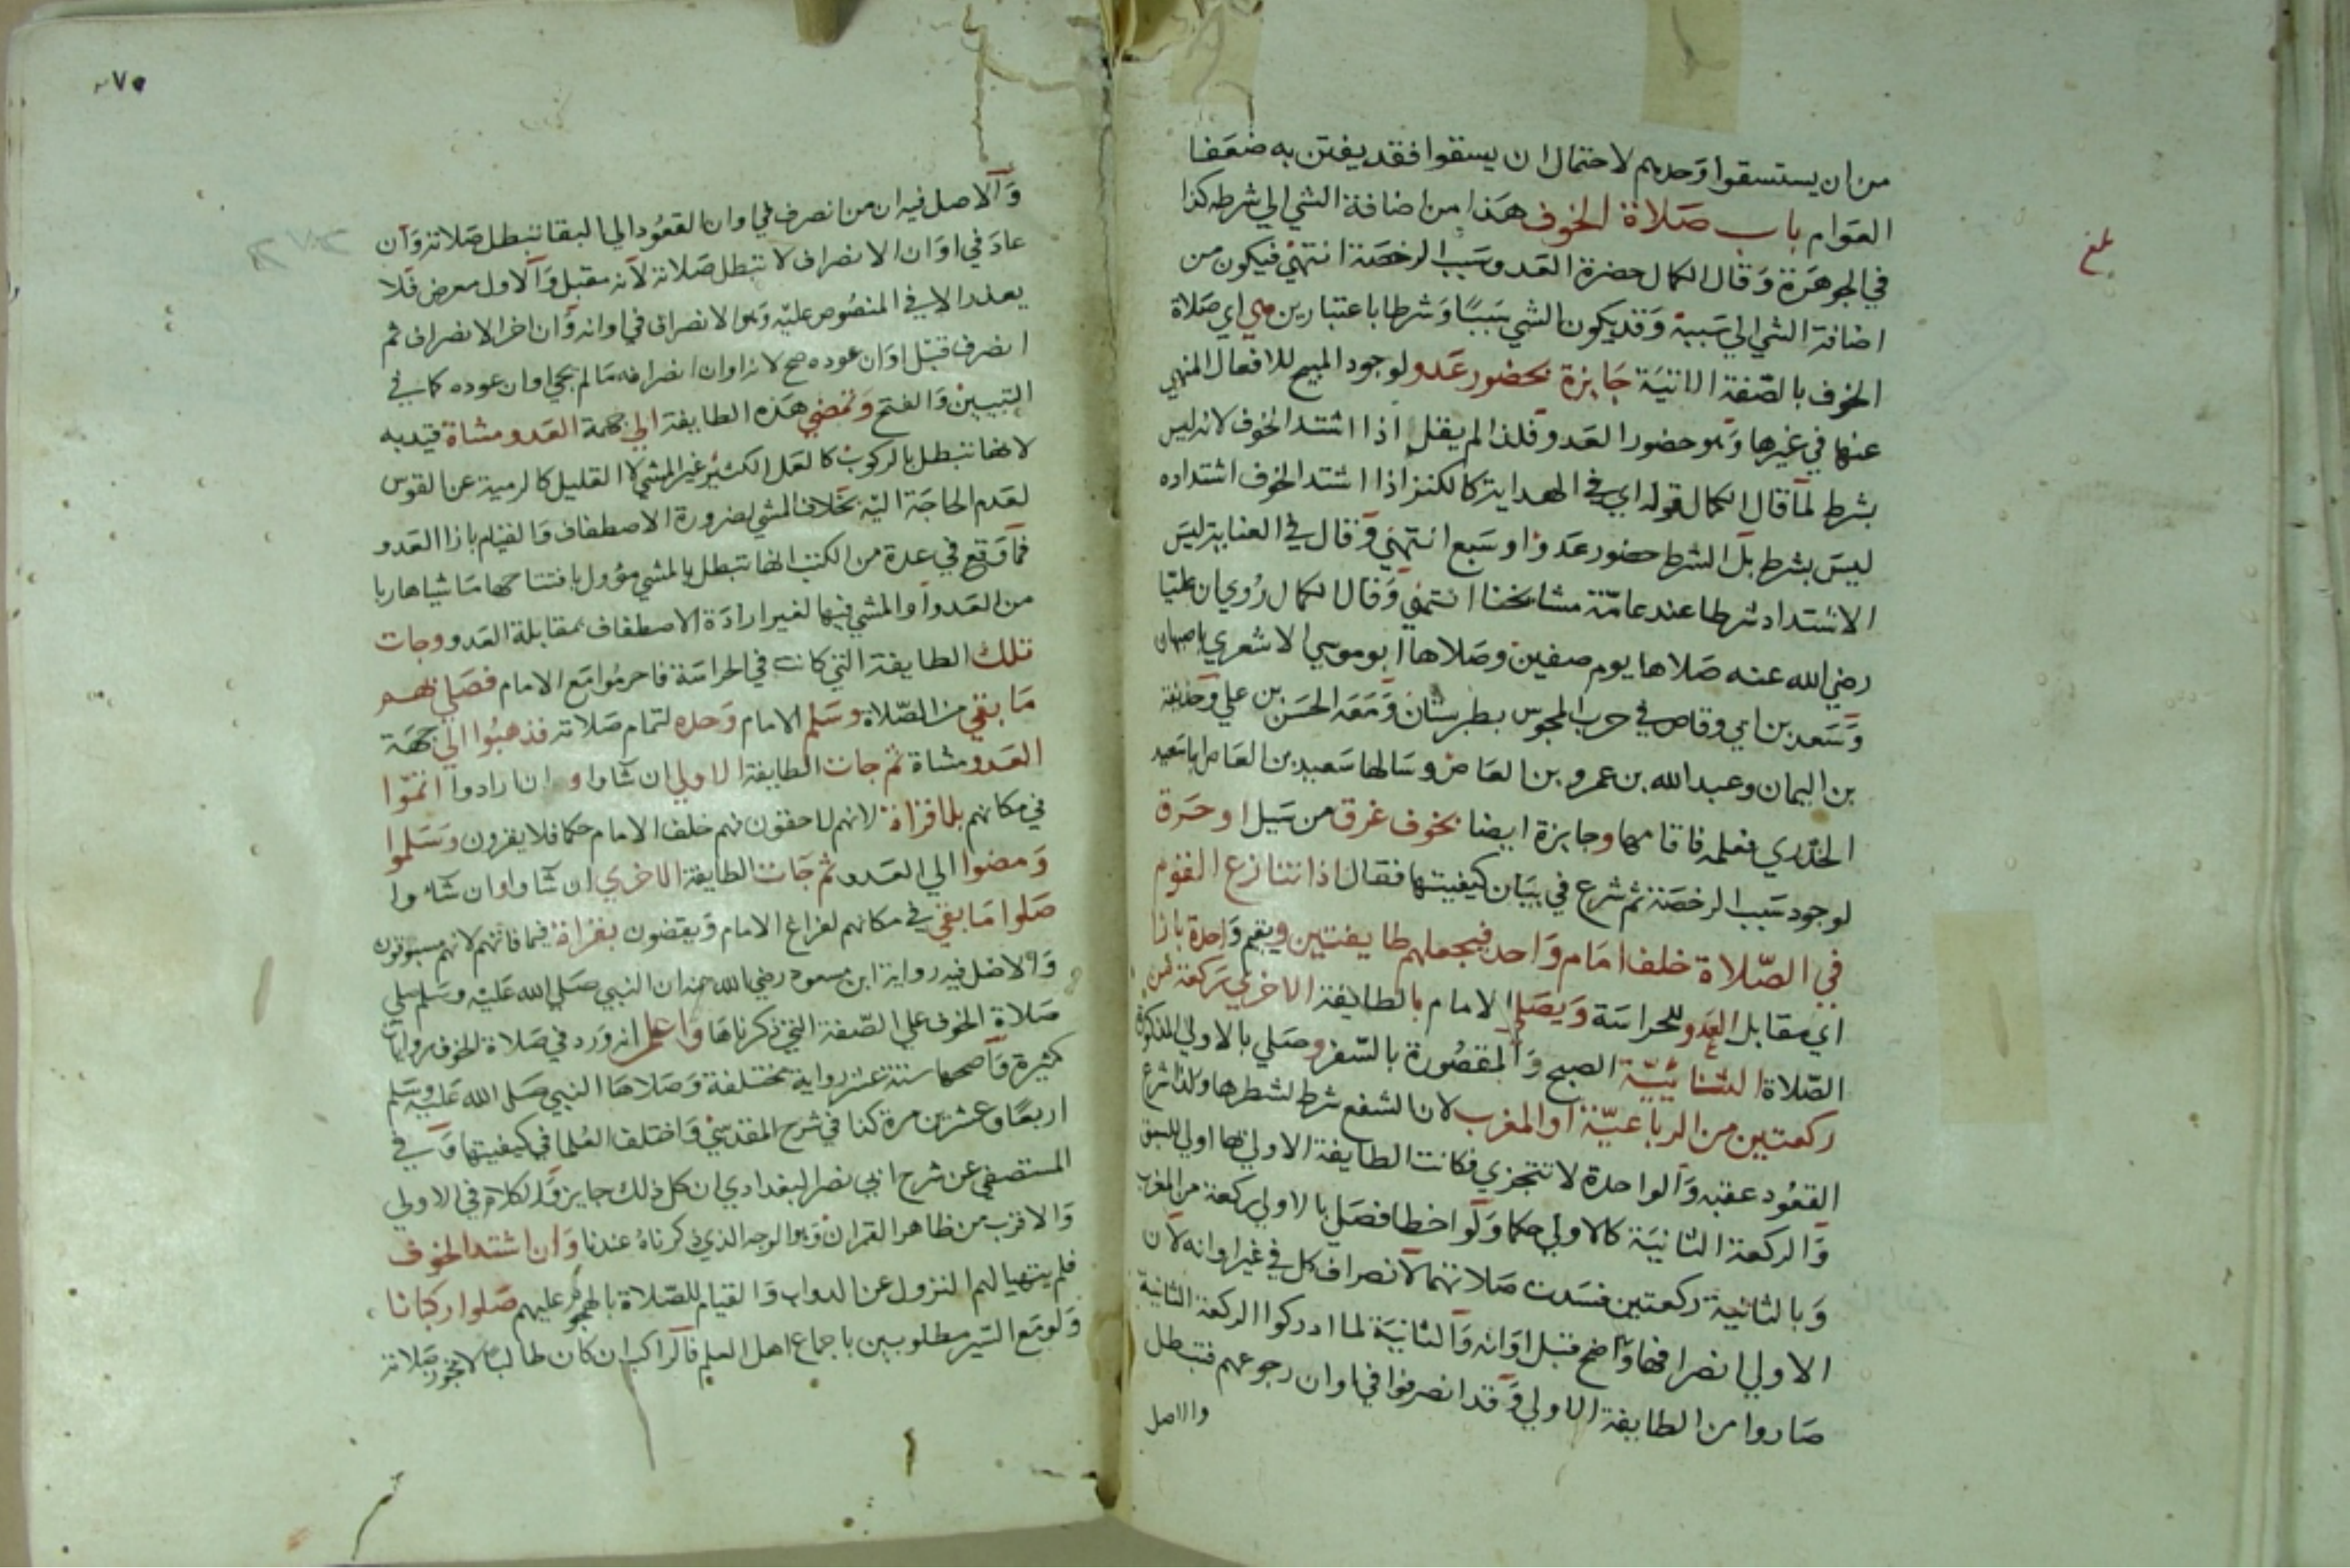 من ان يستسقوا وحدهم لاحتمال ان يسقوا فقد يفتتن به ضعفا
العوام باب صلاة الخوف هذا من اضافة الشي الي شرطه كذا
في الجوهرة وقال الكمال حضرة العدو سبب الرخصة انتهي فيكون من
اضافة الشي الي سببه وقد يكون الشي سببا وشرطا باعتبارين هي اي صلاة
الخوف بالصفة الاتية جايزة بحضور عدو لوجود المبيح للافعال المنهي
عنها في غيرها وهو حضور العدو فلذا لم يقل اذا اشتد الخوف لانه ليس
بشرط لما قال الكمال قوله اي في الهداية كالكنز اذا اشتد الخوف اشتداده
ليس بشرط بل الشرط حضور عدو او سبع انتهي وقال في العناية ليس
الاشتداد شرطا عند عامة مشايخنا انتهي وقال الكمال روي ان عليا
رضي الله عنه صلاها يوم صفين وصلاها ابو موسي الاشعري باصبهان
وسعد بن ابي وقاص في حرب المجوس بطبرستان ومعه الحسن بن علي وحذيفة
بن اليمان وعبد الله بن عمرو بن العاص وسالها سعيد بن العاص ابا سعيد
الخدري فعلمه فاقامها وجايزة ايضا بخوف غرق من سيل او حرق
لوجود سبب الرخصة ثم شرع في بيان كيفيتها فقال اذا تنازع القوم
في الصلاة خلف امام واحد فيجعلهم طايفتين ويقيم واحدة بازا
اي مقابل العدو للحراسة ويصلي الامام بالطايفة الاخري ركعة من
الصلاة الثنائية الصبح والمقصورة بالسفر وصلي بالاولي المذكورة
ركعتين من الرباعية او المغرب لان الشفع شرط لشطرها ولذا شرع
القعود عقبه والواحدة لا تتجزي فكانت الطايفة الاولي بها اولي للسبق
والركعة الثانية كالاولي حكما ولو اخطا فصلي بالاولي ركعة من المغرب
وبالثانية ركعتين فسدت صلاتهما لانصراف كل في غير اوانه لان
الاولي انصرافها واضح قبل اوانه والثانية لما ادركوا الركعة الثانية
صاروا من الطايفة الاولي وقد انصرفوا في اوان رجوعهم فتبطل
والاصل
بلغ
والاصل فيه ان من انصرف في اوان القعود الي البقا تبطل صلاته وان
عاد في اوان الانصراف لا تبطل صلاته لانه مقبل والاول معرض فلا
يعذر الا في المنصوص عليه وهو الانصراف في اوانه وان اخر الانصراف ثم
انصرف قبل اوان عوده صح لانه اوان انصرافه ما لم يجي اوان عوده كما في
التبيين والفتح وتمضي هذه الطايفة الي جهة العدو مشاة قيد به
لانها تبطل بالركوب كالعمل الكثير غير المشي لا القليل كالرمية عن القوس
لعدم الحاجة اليه بخلاف المشي لضرورة الاصطفاف والقيام بازا العدو
فما وقع في عدة من الكتب انها تبطل بالمشي مؤول بافتتاحها ماشيا هاربا
من العدو او المشي فيها لغير ارادة الاصطفاف بمقابلة العدو وجات
تلك الطايفة التي كانت في الحراسة فاحرموا مع الامام فصلي بهم
ما بقي من الصلاة وسلم الامام وحده لتمام صلاته فذهبوا الي جهة
العدو مشاة ثم جات الطايفة الاولي ان شاوا و ان ارادوا اتموا
في مكانهم بلا قراة لانهم لاحقون فهم خلف الامام حكما فلا يقرون وسلموا
ومضوا الي العدو ثم جات الطايفة الاخري ان شاوا وان شاوا
صلوا ما بقي في مكانهم لفراغ الامام ويقضون بقراة فيما فاتهم لانهم مسبوقون
والاصل فيه رواية ابن مسعود رضي الله عنه ان النبي صلي الله عليه وسلم صلي
صلاة الخوف علي الصفة التي ذكرناها واعلم انه ورد في صلاة الخوف روايات
كثيرة واصحها ستة عشر رواية مختلفة وصلاها النبي صلي الله عليه وسلم
اربعا وعشرين مرة كذا في شرح المقدسي واختلف العلما في كيفيتها وفي
المستصفي عن شرح ابي نصر البغدادي ان كل ذلك جايز والكلام في الاولي
والاقرب من ظاهر القران وهو الوجه الذي ذكرناه عندنا وان اشتد الخوف
فلم يتهيا لهم النزول عن الدواب والقيام للصلاة بالهجوم عليهم صلوا ركبانا
ولو مع السير مطلوبين باجماع اهل العلم فالراكب ان كان طالبا لا تجوز صلاته